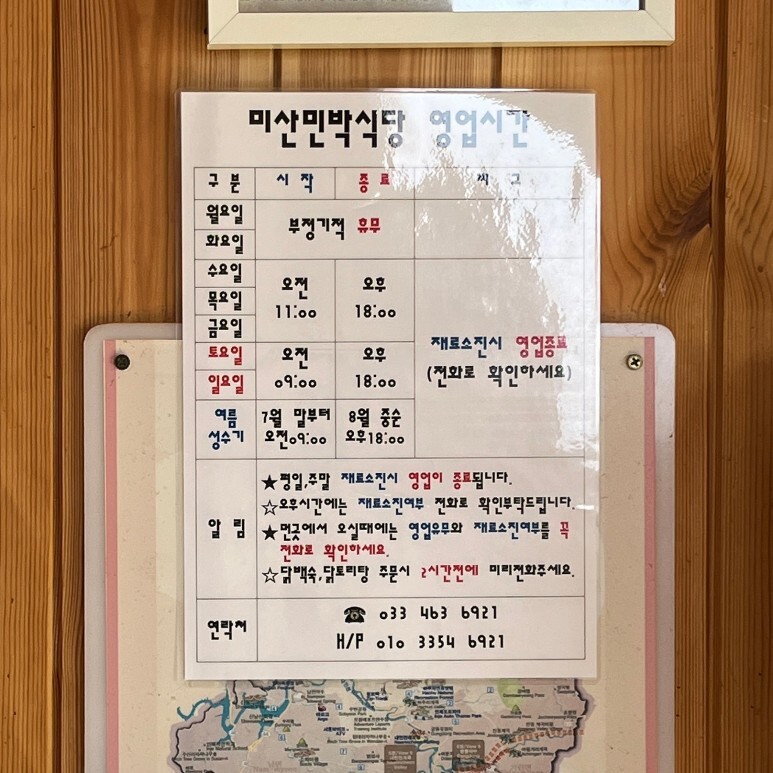 미산민박식당 영업시간
구 분 시 작 종 료
월요일
화요일
부정기적 휴무
수요일
목요일
금요일
오전
11:00
오후
18:00
토요일
일요일
오전
09:00
오후
18:00
재료소진시 영업종료
(전화로 확인하세요)
여름
성수기
7월 말부터
오전09:00
8월 중순
오후18:00
알 림
★평일,주말 재료소진시 영업이 종료됩니다.
☆오후시간에는 재료소진여부 전화로 확인부탁드립니다.
★먼곳에서 오실때에는 영업유무와 재료소진여부를 꼭
전화로 확인하세요.
☆닭백숙,닭토리탕 주문시 2시간전에 미리전화주세요.
연락처
☎ 033 463 6921
H/P 010 3354 6921